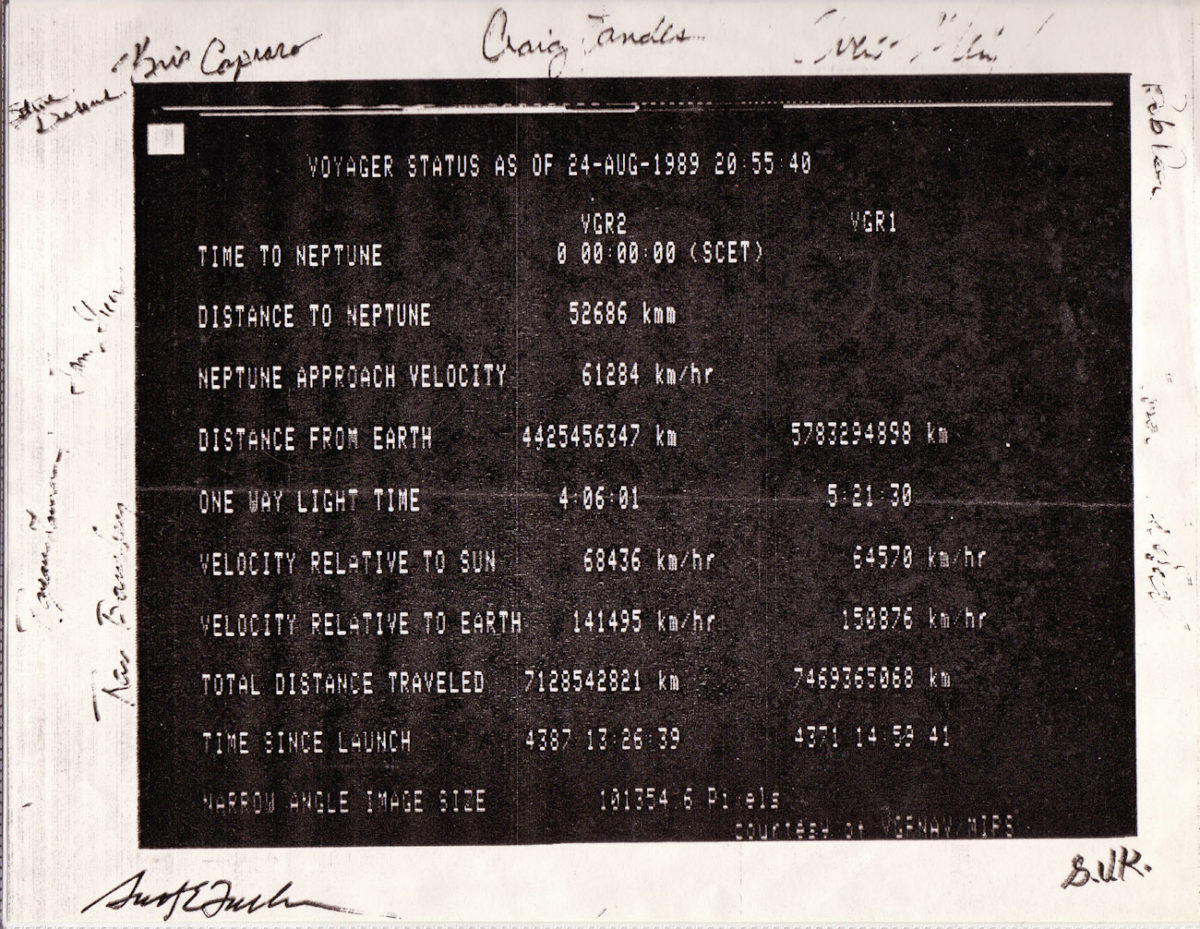 Kris Capraro
Craig
VOYAGER STATUS AS OF 24-AUG-1989 20:55:40
VGR2 VGR1
TIME TO NEPTUNE 0 00:00:00 (SCET)
DISTANCE TO NEPTUNE 52686 kmm
NEPTUNE APPROACH VELOCITY 61284 km/hr
DISTANCE FROM EARTH 4425456347 km 5783294898 km
ONE WAY LIGHT TIME 4:06:01 5:21:30
VELOCITY RELATIVE TO SUN 68436 km/hr 64570 km/hr
VELOCITY RELATIVE TO EARTH 141495 km/hr 150876 km/hr
TOTAL DISTANCE TRAVELED 7128542821 km 7469365068 km
TIME SINCE LAUNCH 4387 13:26:39 4371 14:59:41
NARROW ANGLE IMAGE SIZE 101354.6 Pixels
courtesy of VGRNAV/MIPS